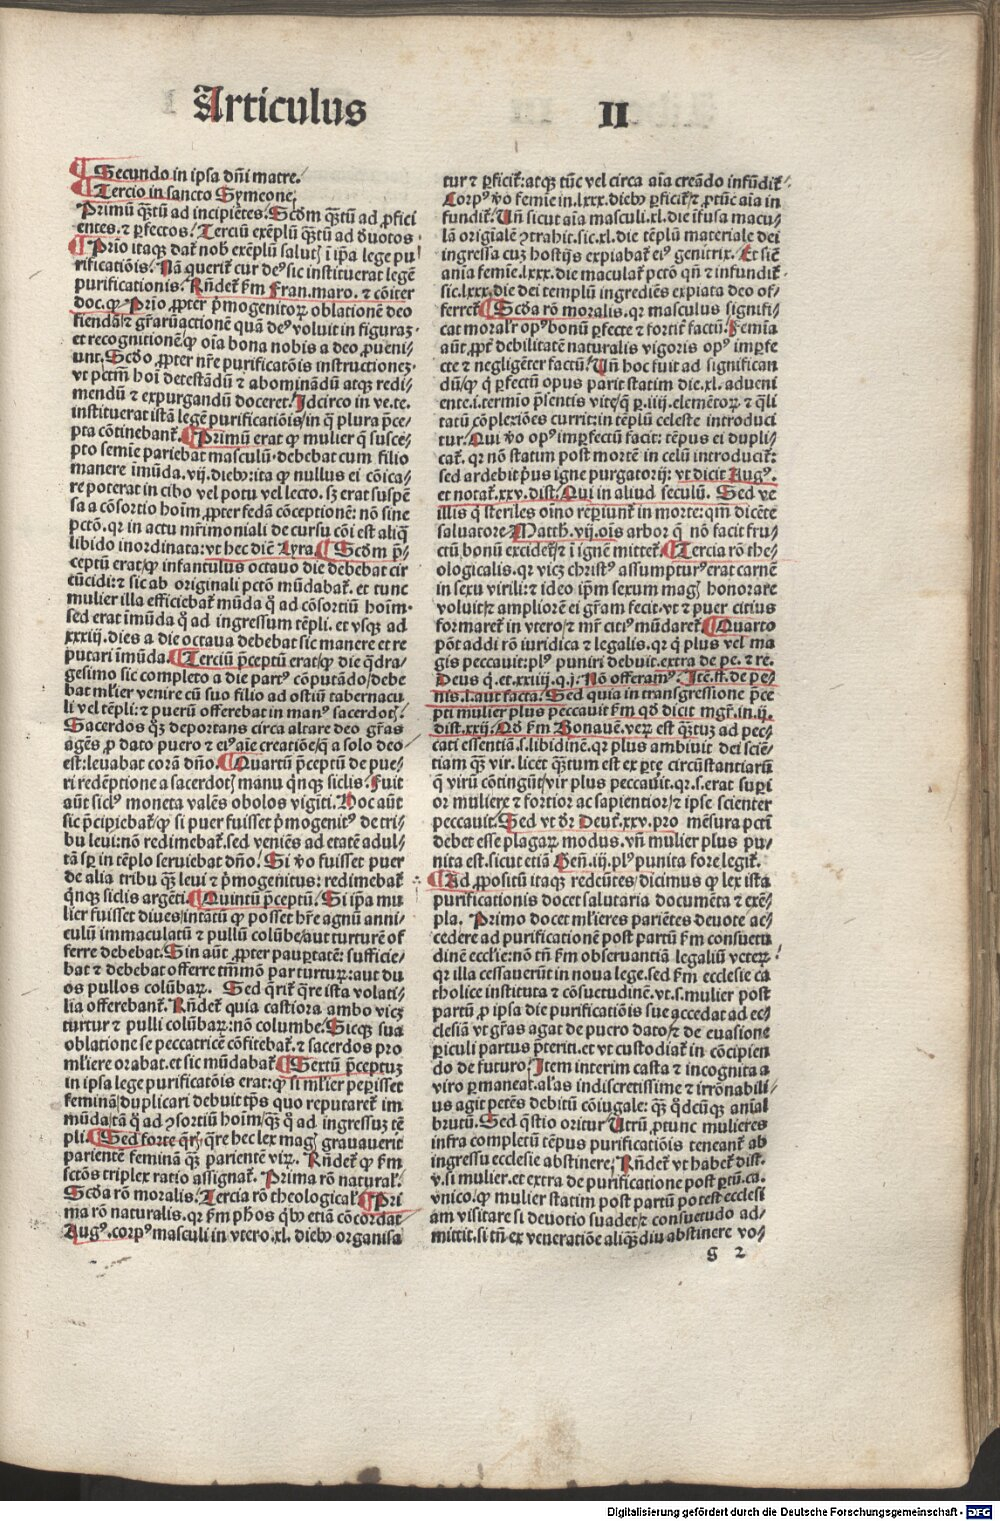 Articulus II
Secundo in ipsa dñi matre.
Tercio in sancto Symeone.
Primũ q̃tũ ad incipiẽtes. Scđm q̃tũ ad ꝓfici
entes. ⁊ ꝑfectos. Terciũ exẽplũ q̃tũ ad deuotos
Prio itaqꝫ dat᷑ nob̄ exẽplũ salutꝭ ĩ ip̃a lege pu
rificatiõis. Nã querit᷑ cur deꝰ sic instituerat legẽ
purificationis. Rñdet᷑ ẜm Fran. maro. ⁊ cõiter
doc. ꝙ Prio ꝓpter p̃mogenitoꝝ oblationẽ deo
fiendã/⁊ gr̃aꝝactionẽ quã deꝰ voluit in figuraꝫ
et recognitionẽ/ꝙ oĩa bona nobis a deo ꝓueni/
unt. Scđo ꝓpter nr̃e purificatõis instructioneꝫ
vt pctm̃ hoĩ detestãdũ ⁊ abominãdũ atqꝫ redi/
mendũ ⁊ expurgandũ doceret. Idcirco in ve. te.
instituerat istã legẽ purificatiõis/in q̃ plura p̃ce/
pta cõtinebant᷑. Primũ erat ꝙ mulier q̃ susce/
pto semĩe pariebat masculũ. debebat cum filio
manere ĩmũda. vij. diebꝫ ita ꝙ nullus ei cõica/
re poterat in cibo vel potu vel lecto. sꝫ erat suspẽ
sa a cõsortio hoĩm ꝓpter fedã cõceptionẽ: nõ sine
pctõ. qꝛ in actu mr̃imoniali de cursu cõi est aliq̃
libido inordinata: vt hec diẽ Lyra. Scđm p̃/
ceptũ erat/ꝙ infantulus octauo die debebat cir
cũcidi: ⁊ sic ab originali pctõ mũdabat᷑. et tunc
mulier illa efficiebat᷑ mũda q̊ ad cõsortiũ hoĩm.
sed erat ĩmũda q̊ ad ingressum tẽpli. et vsqꝫ ad
xxxiij. dies a die octaua debebat sic manere et re
putari ĩmũda. Terciũ p̃ceptũ erat/ꝙ die q̃dra/
gesimo sic completo a die partꝰ cõputãdo/debe
bat ml̃ier venire cũ suo filio ad ostiũ tabernacu
li vel tẽpli: ⁊ puerũ offerebat in manꝰ sacerdotꝭ.
Sacerdos q̃ꝫ deportans circa altare deo gr̃as
agẽs ꝓ dato puero ⁊ eiꝰ aĩe creatiõe/q̃ a solo deo
est: leuabat corã dño. Quartũ p̃ceptũ de pue/
ri redẽptione a sacerdotꝭ manu q̃nqꝫ siclis. Fuit
aũt siclꝰ moneta valẽs obolos vigĩti. Hoc aũt
sic p̃cipiebat᷑/ꝙ si puer fuisset p̃mogenitꝰ de tri/
bu leui: nõ redimebat᷑. sed veniẽs ad etatẽ adul/
tã sꝑ in tẽplo seruiebat dño. Si v̊o fuisset puer
de alia tribu q̃ꝫ leui ⁊ p̃mogenitus: redimebat᷑
q̃nqꝫ siclis argẽti. Quintũ p̃ceptũ. Si ip̃a mu
lier fuisset diues/intãtũ ꝙ posset hr̃e agnũ anni/
culũ immaculatũ ⁊ pullũ colũbe/aut turturẽ of
ferre debebat. Sin aũt ꝓpter pauꝑtatẽ: sufficie/
bat ⁊ debebat offerre tm̃mõ par turtuꝝ: aut du
os pullos colũbaꝝ. Sed q̃rit᷑ q̃re ista volati/
lia offerebant᷑. Rñdet᷑ quia castiora ambo viꝫ
turtur ⁊ pulli colũbaꝝ: nõ columbe. Sicqꝫ sua
oblatione se peccatricẽ cõfitebat᷑. ⁊ sacerdos pro
ml̃iere orabat. et sic mũdabat᷑. Sextũ p̃ceptuꝫ
in ipsa lege purificatõis erat: ꝙ si ml̃ier peꝑisset
feminã/duplicari debuit tp̃s quo reputaret᷑ im
mũda/tã q̊ ad ꝯsortiũ hoĩm/q̃ꝫ q̊ ad ingressuꝫ tẽ
pli. Sed forte q̃rꝭ q̃re hec lex magꝭ grauauerit
parientẽ feminã q̃ꝫ parientẽ viꝝ. Rñdet᷑ ꝙ ẜm
sctõs triplex ratio assignat᷑. Prima rõ natural᷑.
Scđa rõ moralis. Tercia rõ theological᷑. Pri
ma rõ naturalis. qꝛ ẜm ph̃os q̇bꝫ etiã cõcordat
Augꝰ. corpꝰ masculi in vtero. xl. diebꝫ organisa
tur ⁊ ꝑficit᷑: atqꝫ tũc vel circa aĩa creãdo infũdit᷑
Corpꝰ v̊o femĩe in. lxxx. diebꝫ ꝑficit᷑/⁊ ꝓtũc aĩa in
fundit᷑. Uñ sicut aĩa masculi. xl. die ĩfusa macu/
lã origĩalẽ ꝯtrahit. sic. xl. die tẽplũ materiale dei
ingressa cuꝫ hostijs expiabat᷑ eiꝰ genitrix. Et sicẽ
anĩa femĩe. lxxx. die maculat᷑ pctõ qñ ⁊ infundit᷑
sic. lxxx. die dei templũ ingrediẽs expiata deo of/
ferret᷑. Scđa rõ moralis. qꝛ masculus signifi/
cat moralr̃ opꝰ bonũ ꝑfecte ⁊ fortit᷑ factũ. Femĩa
aũt ꝓpt᷑ debilitatẽ naturalis vigoris opꝰ imꝑfe
cte ⁊ negligẽter factũ. Uñ hoc fuit ad significan
dũ/ꝙ q̇ ꝑfectũ opus parit statim die. xl. adueni
ente. i. termĩo p̃sentis vite/q̃ ꝑ. iiij. elemẽtoꝝ ⁊ q̃li
tatũ cõplexiões currit: in tẽplũ celeste introduci
tur. Qui v̊o opꝰ imꝑfectũ facit: tẽpus ei dupli/
cat᷑. qꝛ nõ statim post mortẽ in celũ introducit᷑:
sed ardebit p̃us igne purgatorij: vt dicit Augꝰ.
et notat᷑. xxv. dist. Qui in aliud seculũ. Sed ve
illis q̇ steriles oĩno reꝑiunt᷑ in morte: qm̃ dicẽte
saluatore Matth. vij. oĩs arbor q̃ nõ facit fru/
ctũ bonũ excidet᷑/⁊ ĩ ignẽ mittet᷑. Tercia rõ the/
ologicalis. qꝛ viꝫ christꝰ assumpturꝰ erat carnẽ
in sexu virili: ⁊ ideo ip̃m sexum magꝭ honorare
voluit/⁊ ampliorẽ ei gr̃am fecit. vt ⁊ puer citius
formaret᷑ in vtero/⁊ mr̃ citiꝰ mũdaret᷑. Quarto
põt addi rõ iuridica ⁊ legalis. qꝛ q̃ plus vel ma
gis peccauit: plꝰ puniri debuit. extra de pe. ⁊ re.
Deus q̃. et. xxiiij. q. j. Nõ offeramꝰ. Itẽ. ff. de pe/
nis. l. aut facta. Sed quia in transgressione p̃ce
pti mulier plus peccauit ẜm qđ dicit mgr̃. in. ij.
dist. xxij. Qđ ẜm Bonauẽ. veꝝ est q̃tuꝫ ad pec/
cati essentiã. s. libidinẽ. qꝛ plus ambiuit dei sciẽ/
tiam q̃ꝫ vir. licet q̃tum est ex ꝑte circũstantiarũ
q̃ virũ cõtingũt/vir plus peccauit. qꝛ. s. erat supi
or muliere ⁊ fortior ac sapientior/⁊ ipse scienter
peccauit. Sed vt dr̃ Deut᷑. xxv. pro mẽsura pcti
debet esse plagaꝝ modus. vñ mulier plus pu/
nita est. sicut etiã Geñ. iij. plꝰ punita fore legit᷑.
Ad ꝓpositũ itaqꝫ redeũtes/dicimus ꝙ lex ista
purificationis docet salutaria documẽta ⁊ exẽ/
pla. Primo docet ml̃ieres pariẽtes deuote ac/
cedere ad purificationẽ post partũ ẜm consuetu
dinẽ eccl̃ie: nõ tñ ẜm obseruantiã legaliũ veteꝝ.
qꝛ illa cessauerũt in noua lege. sed ẜm ecclesie ca
tholice instituta ⁊ cõsuetudinẽ. vt. s. mulier post
partũ ꝓ ipsa die purificatiõis sue accedat ad ec/
clesiã vt gr̃as agat de puero dato/⁊ de euasione
ꝑiculi partus p̃teriti. et vt custodiat᷑ in cõcipien
do de futuro. Item interim casta ⁊ incognita a
viro ꝑmaneat. al̃as indiscretissime ⁊ irrõnabili/
us agit petẽs debitũ cõiugale: q̃ꝫ q̊dcũqꝫ anĩal
brutũ. Sed q̃stio oritur Utrũ ꝓtunc mulieres
infra completũ tẽpus purificatiõis teneant᷑ ab
ingressu ecclesie abstinere. Rñdet᷑ vt habet᷑ dist.
v. si mulier. et extra de purificatione post ꝑtũ. ca.
vnico. ꝙ mulier statim post partũ potest ecclesi
am visitare si deuotio suadet/⁊ consuetudo ad/
mittit. si tñ ex veneratiõe aliq̃diu abstinere vo/
g 2
Digitalisierung gefördert durch die Deutsche Forschungsgemeinschaft - DFG